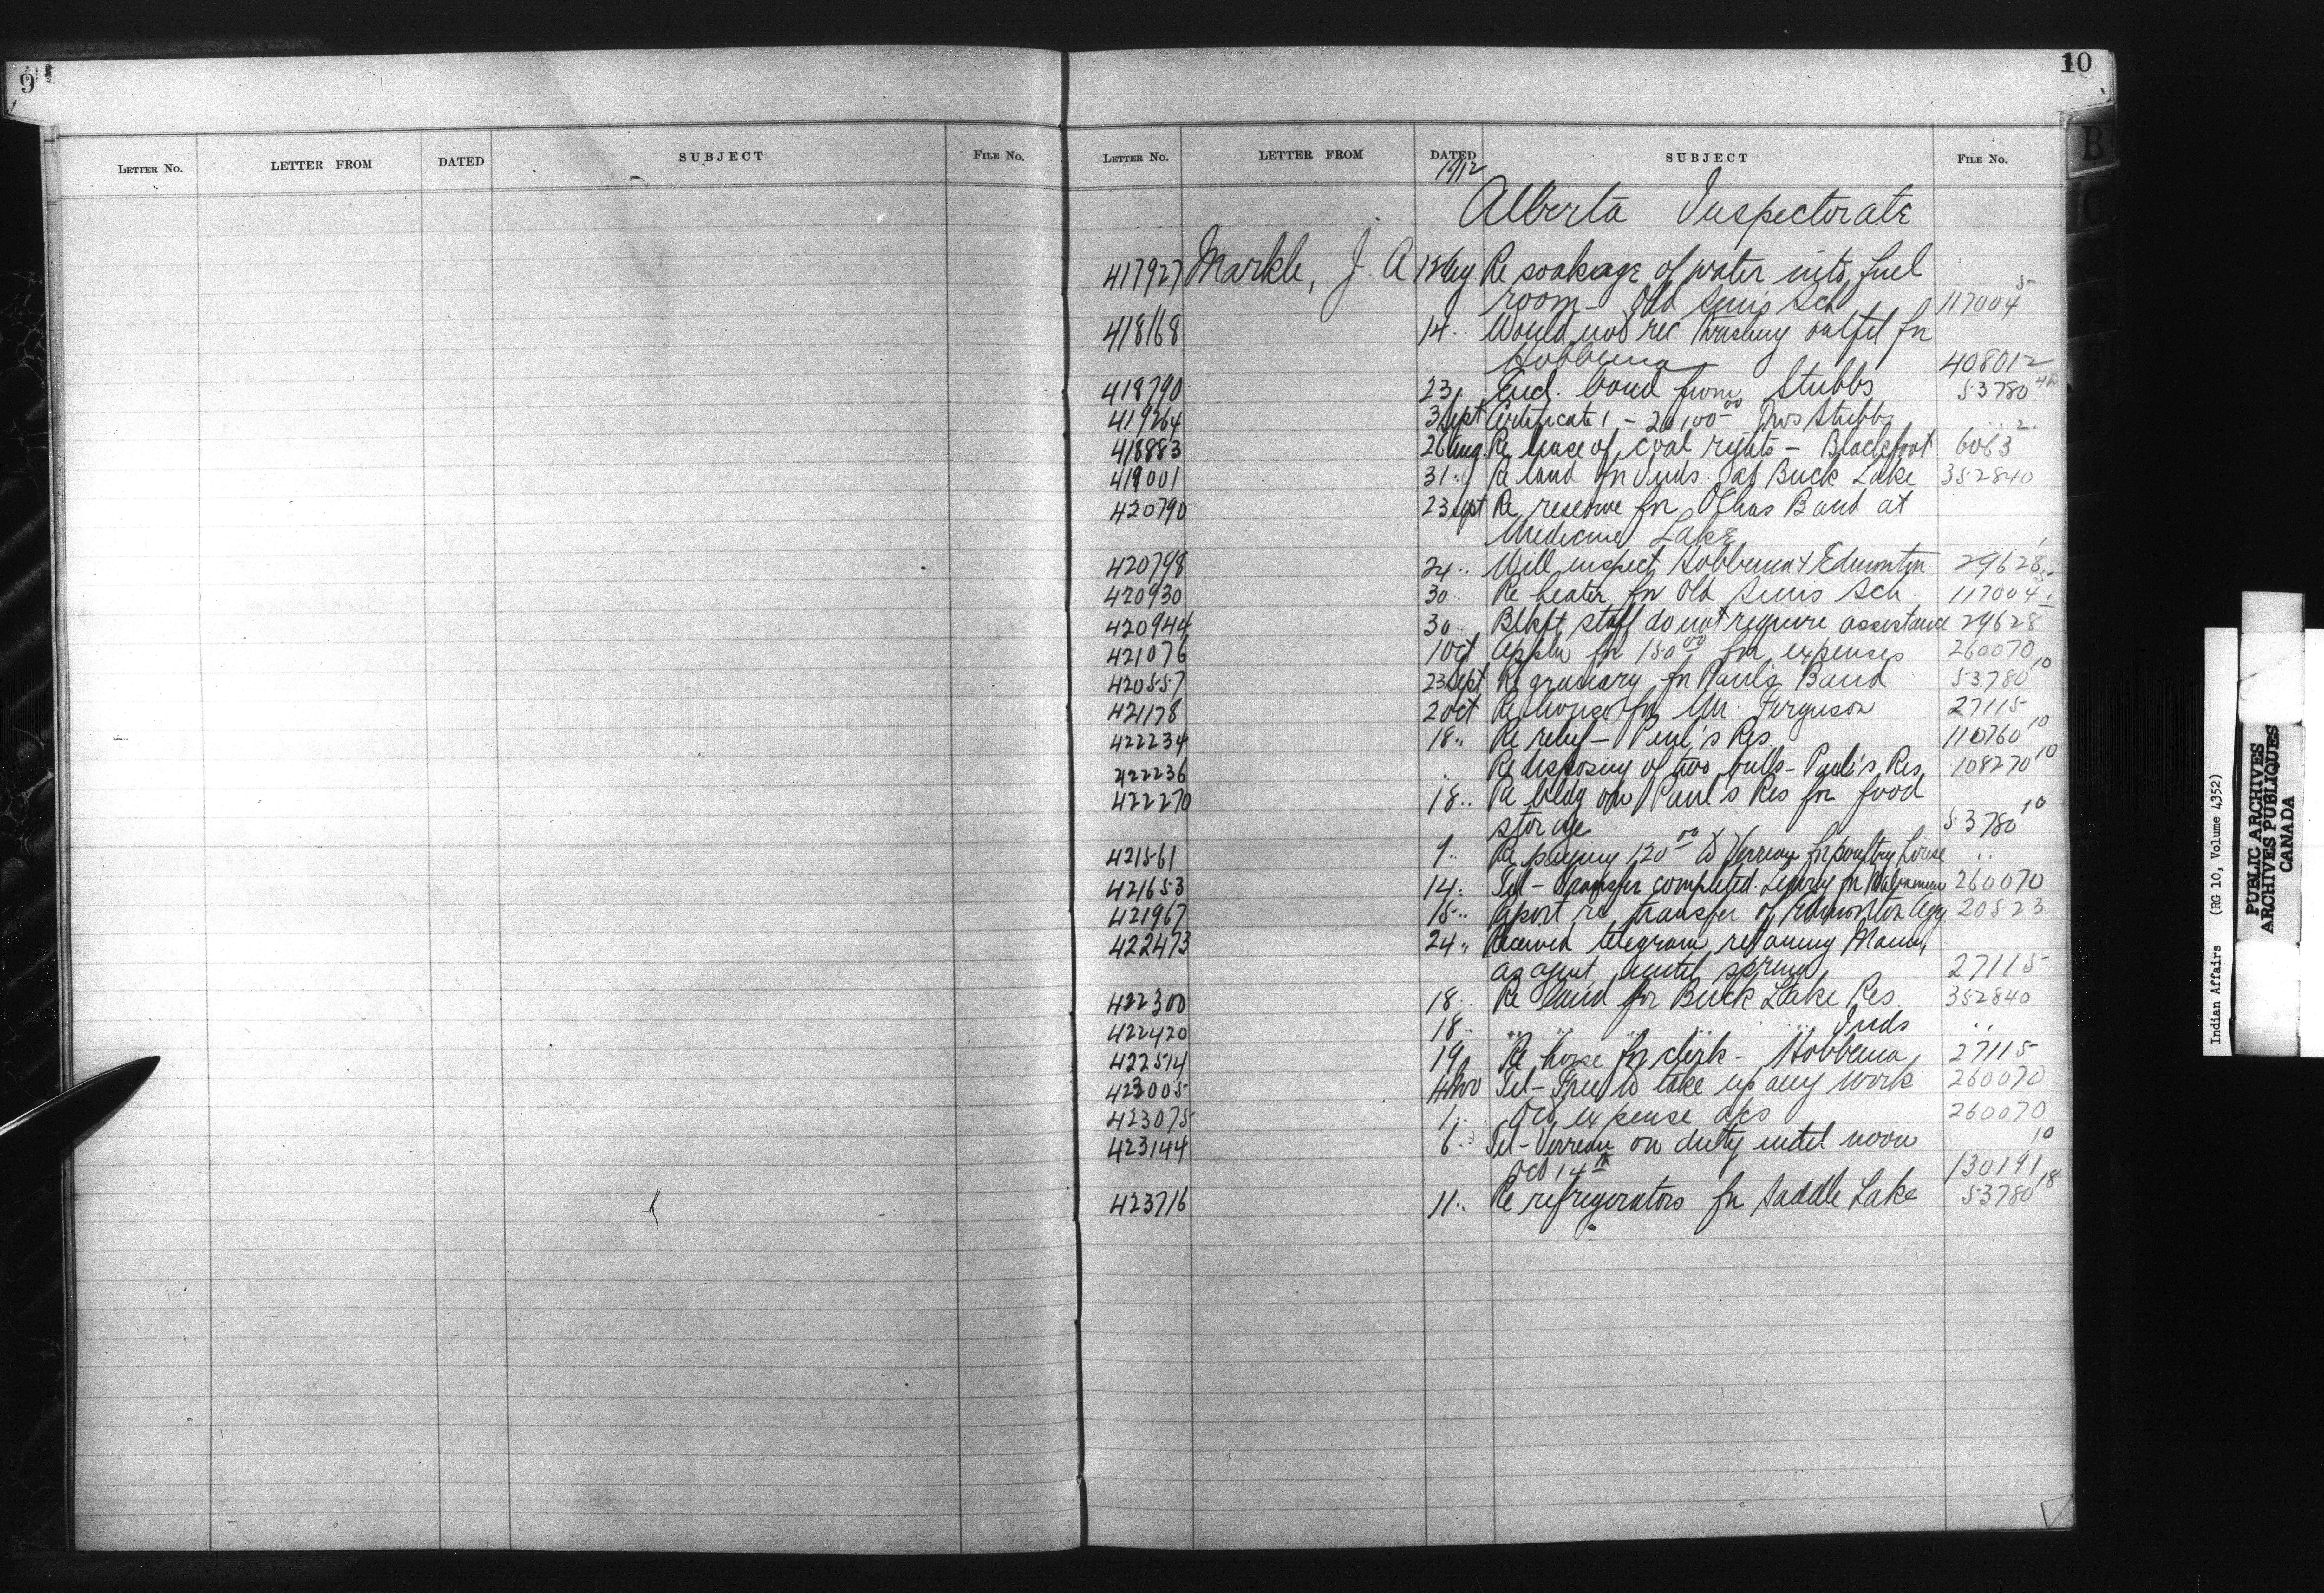 9
LETTER NO. LETTER FROM DATED SUBJECT FILE NO.
10
LETTER NO. LETTER FROM DATED SUBJECT FILE NO.
1912
Alberta Inspectorate
417927 Markle, J. A 12 Aug. Re soakage of water into fuel
room - Old Suns Sch. 117004 5
418168 14 .. Would not rec. threshing outfit for
Hobbema 408012
418790 23 . Encl. bond from Stubbs 53780
419264 3 Sept Certificate 1 - 20,100 00 Stubbs .. 2.
418883 26 Aug. Re lease of coal rights - Blackfoot 6063
419001 31 .. Re land for Inds. at Buck Lake 352840
420790 23 Sept Re reserve for Band at
Medicine Lake
420798 24 .. Will inspect Hobbema & Edmonton 29628
420930 30 .. Re heater for Old Suns Sch. 117004 5
420944 30 .. Blkft staff do not require assistance 29628
421076 1 Oct Appln for 150 00 for expenses 260070
420557 23 Sept Re granary for Paul's Band 53780 10
421178 2 Oct Re horse for Mr. Ferguson 27115
422234 18 .. Re relief - Paul's Res. 110760 10
422236 .. Re disposing of two bulls - Paul's Res. 108270 10
422270 18 .. Re bldg on Paul's Res for food
storage 53780 10
421561 9 .. Re paying 120 00 to Verreau for poultry house ..
421653 14 . Tel - Transfer completed. Leaving for 260070
421967 15 .. Report re transfer of Edmonton Agy. 20523
422473 24 .. Received telegram retaining Mann
as agent until spring 27115
422300 18 .. Re land for Buck Lake Res. 352840
422420 18 .. .. .. .. .. .. Inds ..
422514 19 Re horse for clerk - Hobbema 27115
423005 4 Nov Tel - Free to take up any work 260070
423075 1 .. Oct expense acs 260070
423144 6 .. Tel - Verreau on duty until noon
Oct 14th 130191 10
423716 11 .. Re refrigerators for Saddle Lake 53780 18
B
C
Indian Affairs (RG 10, Volume 4352)
PUBLIC ARCHIVES
ARCHIVES PUBLIQUES
CANADA